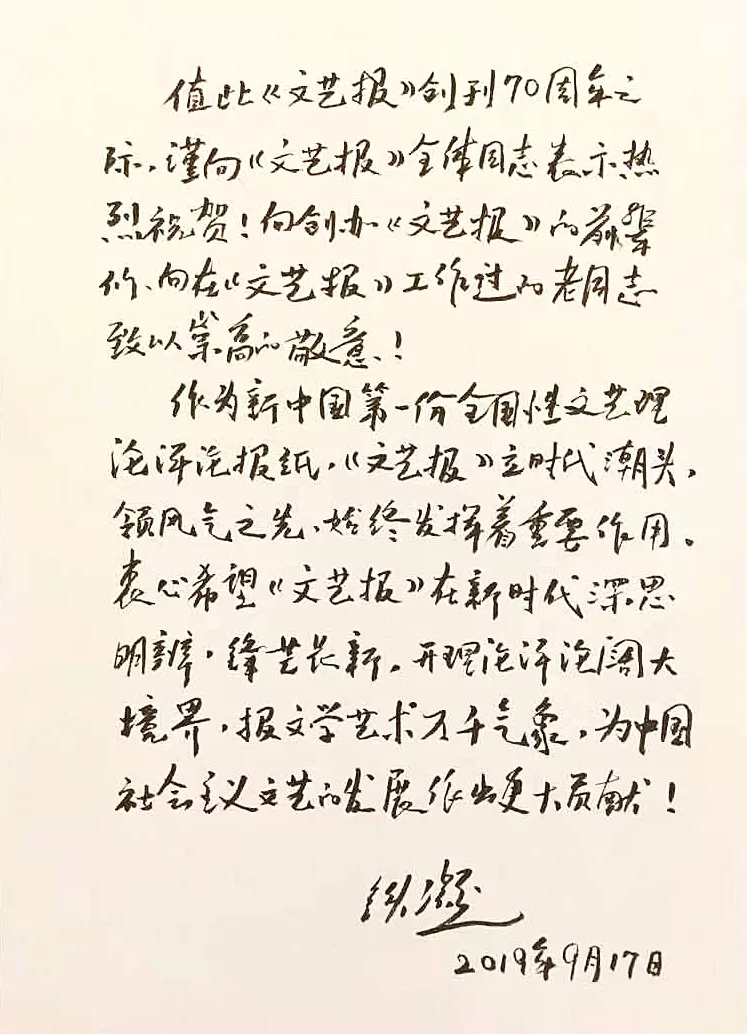 值此《文艺报》创刊70周年之
际，谨向《文艺报》全体同志表示热
烈祝贺！向创办《文艺报》的前辈
们、向在《文艺报》工作过的老同志
致以崇高的敬意！
作为新中国第一份全国性文艺理
论评论报纸，《文艺报》立时代潮头，
领风气之先，始终发挥着重要作用。
衷心希望《文艺报》在新时代深思
明辨，锋芒长新，开理论评论阔大
境界，报文学艺术万千气象，为中国
社会主义文艺的发展作出更大贡献！
铁凝
2019年9月17日